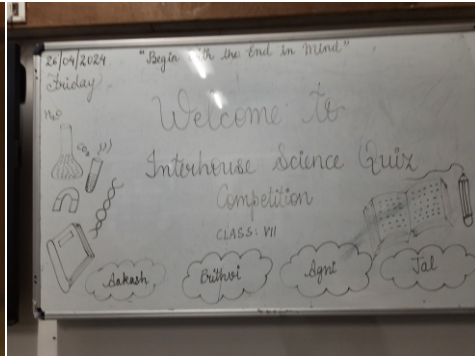 26/04/2024 "Begin with the End in Mind"
Friday
Welcome to
H₂O
CO₂
Interhouse Science Quiz
Competition
CLASS: VII
Aakash Prithvi Agni Jal